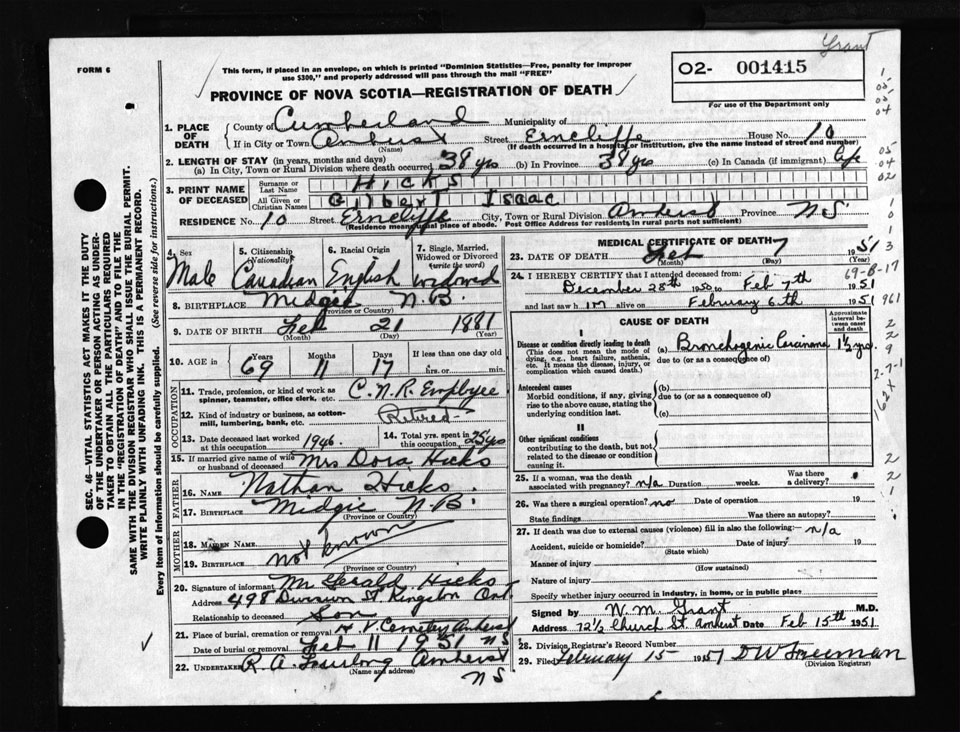 Grant
FORM 6
This form, if placed in an envelope, on which is printed "Dominion Statistics—Free, penalty for improper
use $300," and properly addressed will pass through the mail "FREE"
PROVINCE OF NOVA SCOTIA—REGISTRATION OF DEATH
O2- 001415
For use of the Department only
1. PLACE OF DEATH
County of Cumberland Municipality of
If in City or Town Amherst Street Erncliffe House No. 10
(Name) (If death occurred in a hospital or institution, give the name instead of street and number)
2. LENGTH OF STAY (in years, months and days)
(a) In City, Town or Rural Division where death occurred 38 yrs (b) In Province 38 yrs (c) In Canada (if immigrant) Life
3. PRINT NAME OF DECEASED
Surname or Last Name HICKS
All Given or Christian Names Gilbert Isaac
RESIDENCE No. 10 Street Erncliffe City, Town or Rural Division Amherst Province N.S.
(Residence means usual place of abode. Post Office Address for residents in rural parts not sufficient)
4. Sex Male
5. Citizenship (Nationality) Canadian
6. Racial Origin English
7. Single, Married, Widowed or Divorced (write the word) widowed
8. BIRTHPLACE Midgic N.B.
(Province or Country)
9. DATE OF BIRTH Feb 21 1881
(Month) (Day) (Year)
10. AGE in Years 69 Months 11 Days 17 If less than one day old
hrs. or min.
OCCUPATION
11. Trade, profession, or kind of work as spinner, teamster, office clerk, etc. C.N.R. Employee
12. Kind of industry or business, as cotton-mill, lumbering, bank, etc. Retired
13. Date deceased last worked at this occupation 1946.
14. Total yrs. spent in this occupation 25 yrs
15. If married give name of wife or husband of deceased Mrs Dora Hicks
FATHER
16. NAME Nathan Hicks
17. BIRTHPLACE Midgic N.B.
(Province or Country)
MOTHER
18. MAIDEN NAME
19. BIRTHPLACE not known
(Province or Country)
20. Signature of informant Mr Gerald Hicks
Address 498 Division St. Kingston Ont
Relationship to deceased Son
21. Place of burial, cremation or removal Cemetery Amherst
Date of burial or removal Feb 11 1951 NS
22. UNDERTAKER R.A. Furlong Amherst
(Name and address) N S
MEDICAL CERTIFICATE OF DEATH
23. DATE OF DEATH Feb 7 1951
(Month) (Day) (Year)
24. I HEREBY CERTIFY that I attended deceased from:
December 28th 1950 to Feb 7th 1951
and last saw him alive on February 6th 1951
CAUSE OF DEATH
Approximate interval between onset and death
I
Disease or condition directly leading to death
(This does not mean the mode of dying, e.g., heart failure, asthenia, etc. It means the disease, injury, or complication which caused death.)
(a) Bronchogenic Carcinoma 1½ yrs.
due to (or as a consequence of)
Antecedent causes
Morbid conditions, if any, giving rise to the above cause, stating the underlying condition last.
(b)
due to (or as a consequence of)
(c)
II
Other significant conditions
contributing to the death, but not related to the disease or condition causing it.
25. If a woman, was the death associated with pregnancy? n/a Duration weeks. Was there a delivery?
26. Was there a surgical operation? no Date of operation 19
State findings Was there an autopsy?
27. If death was due to external causes (violence) fill in also the following:— n/a
Accident, suicide or homicide? Date of injury 19
(State which)
Manner of injury
(How sustained)
Nature of injury
Specify whether injury occurred in industry, in home, or in public place
Signed by W. M. Grant M.D.
Address 72½ Church St. Amherst Date Feb 15th 1951
28. Division Registrar's Record Number
29. Filed February 15 1951 D W Freeman
(Division Registrar)
SEC. 46—VITAL STATISTICS ACT MAKES IT THE DUTY
OF THE UNDERTAKER OR PERSON ACTING AS UNDER-
TAKER TO OBTAIN ALL THE PARTICULARS REQUIRED
IN THE "REGISTRATION OF DEATH" AND TO FILE THE
SAME WITH THE DIVISION REGISTRAR WHO SHALL ISSUE THE BURIAL PERMIT.
WRITE PLAINLY WITH UNFADING INK. THIS IS A PERMANENT RECORD.
Every item of information should be carefully supplied. (See reverse side for instructions.)
69-8-17
961
2-7-1
162x